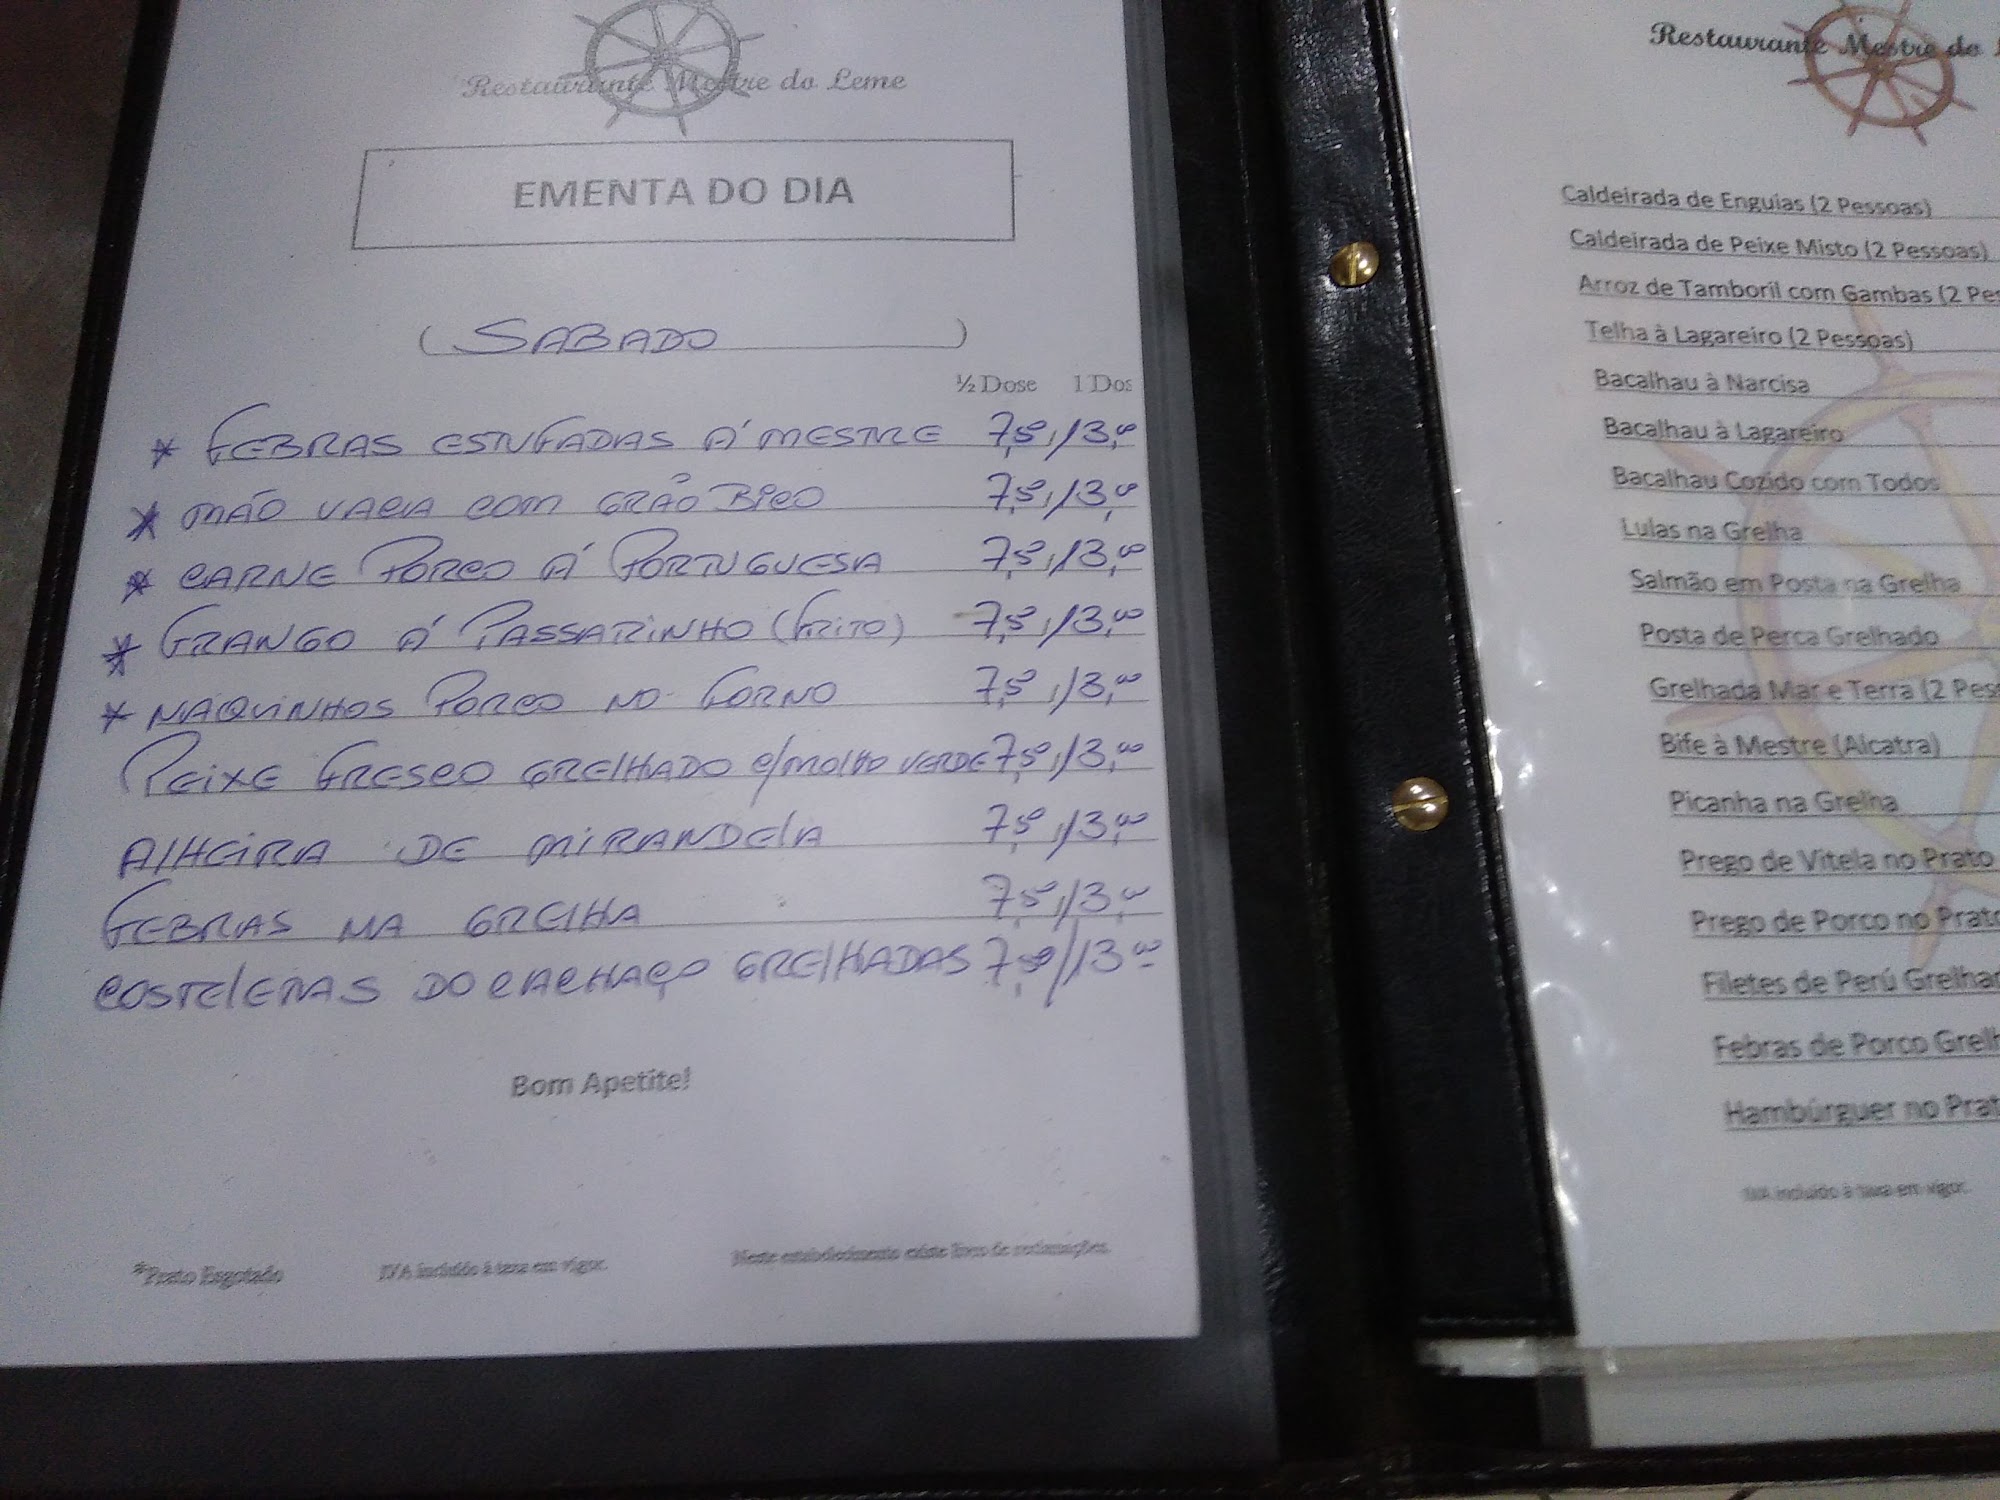 Restaurante Mestre do Leme
EMENTA DO DIA
(SABADO)
½ Dose 1 Dos
* FEBRAS ESTUFADAS Á MESTRE 7,50 / 13,00
* MÃO VACA COM GRÃO BICO 7,50 / 13,00
* CARNE PORCO Á PORTUGUESA 7,50 / 13,00
* FRANGO Á PASSARINHO (FRITO) 7,50 / 13,00
* NAQUINHOS PORCO NO FORNO 7,50 / 13,00
PEIXE FRESCO GRELHADO C/MOLHO VERDE 7,50 / 13,00
ALHEIRA DE MIRANDELA 7,50 / 13,00
FEBRAS NA GRELHA 7,50 / 13,00
COSTELETAS DO CACHAÇO GRELHADAS 7,50 / 13,00
Bom Apetite!
*Prato Esgotado IVA incluído à taxa em vigor. Neste estabelecimento existe livro de reclamações.
Restaurante Mestre do L
Caldeirada de Enguias (2 Pessoas)
Caldeirada de Peixe Misto (2 Pessoas)
Arroz de Tamboril com Gambas (2 Pes
Telha à Lagareiro (2 Pessoas)
Bacalhau à Narcisa
Bacalhau à Lagareiro
Bacalhau Cozido com Todos
Lulas na Grelha
Salmão em Posta na Grelha
Posta de Perca Grelhado
Grelhada Mar e Terra (2 Pess
Bife à Mestre (Alcatra)
Picanha na Grelha
Prego de Vitela no Prato
Prego de Porco no Prato
Filetes de Perú Grelhad
Febras de Porco Grelh
Hambúrguer no Prat
IVA incluído à taxa em vigor.